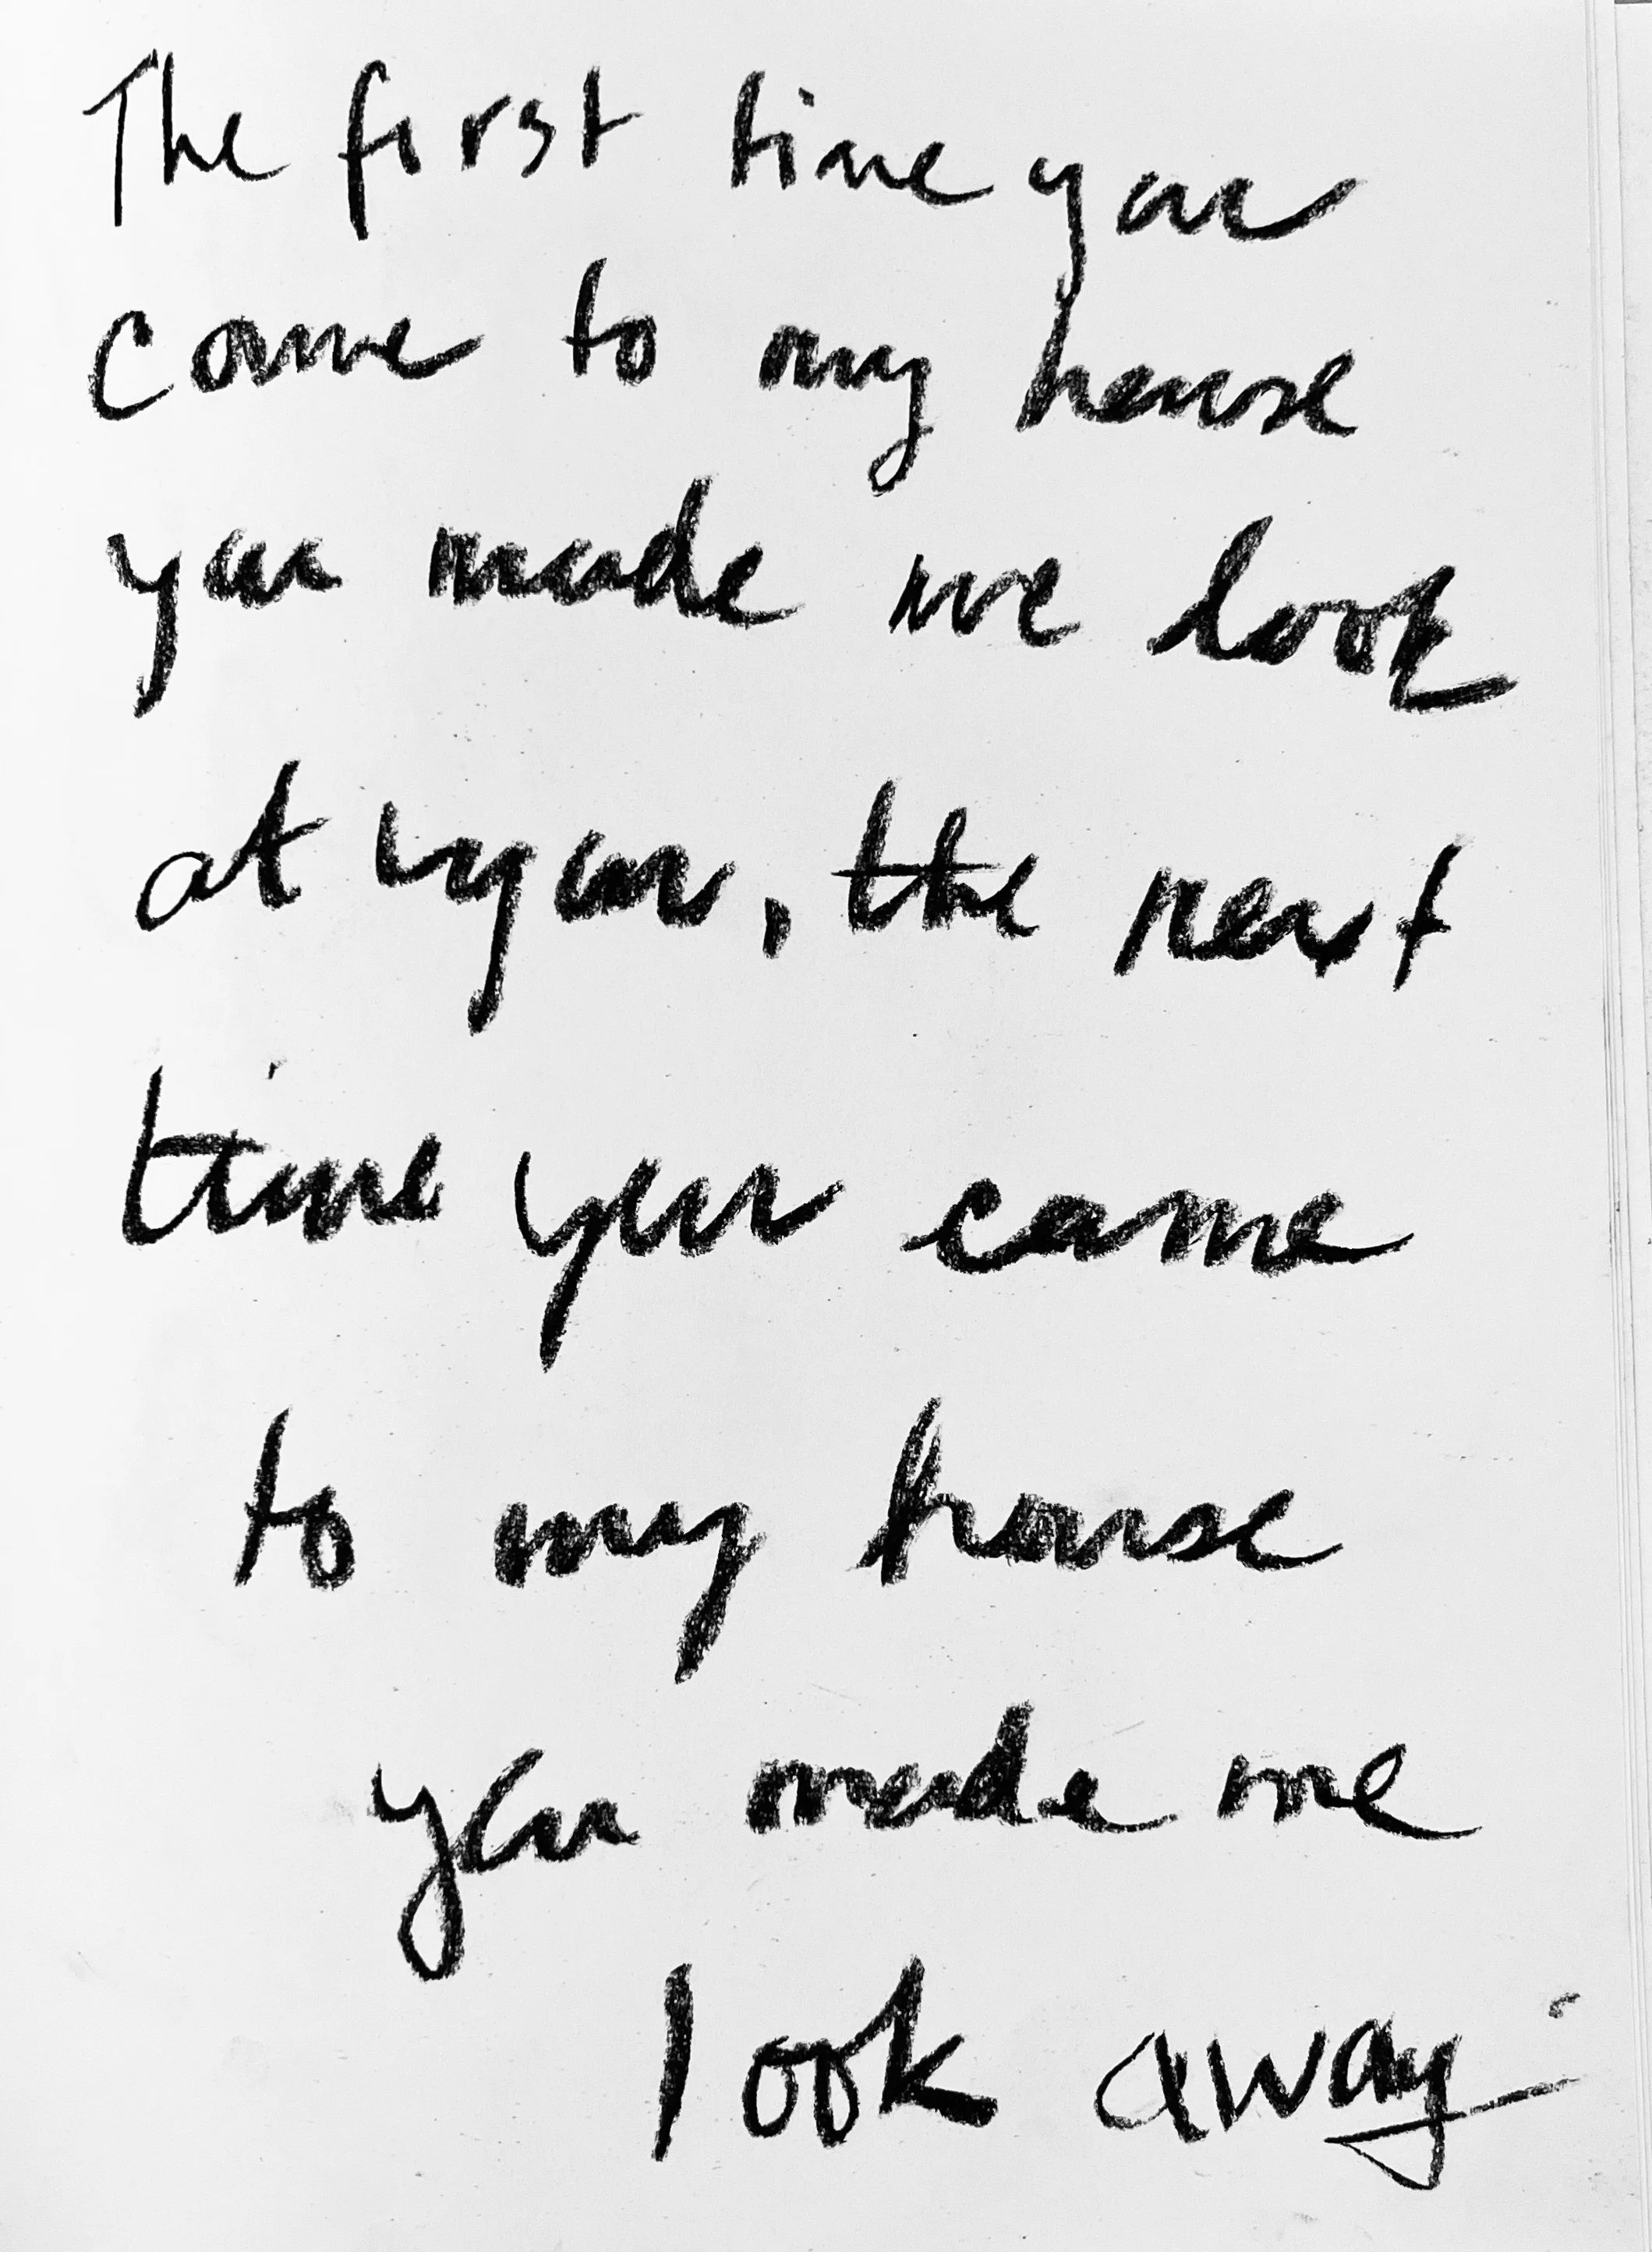 The first time you
came to my house
you made me look
at you, the next
time you came
to my house
you made me
look away